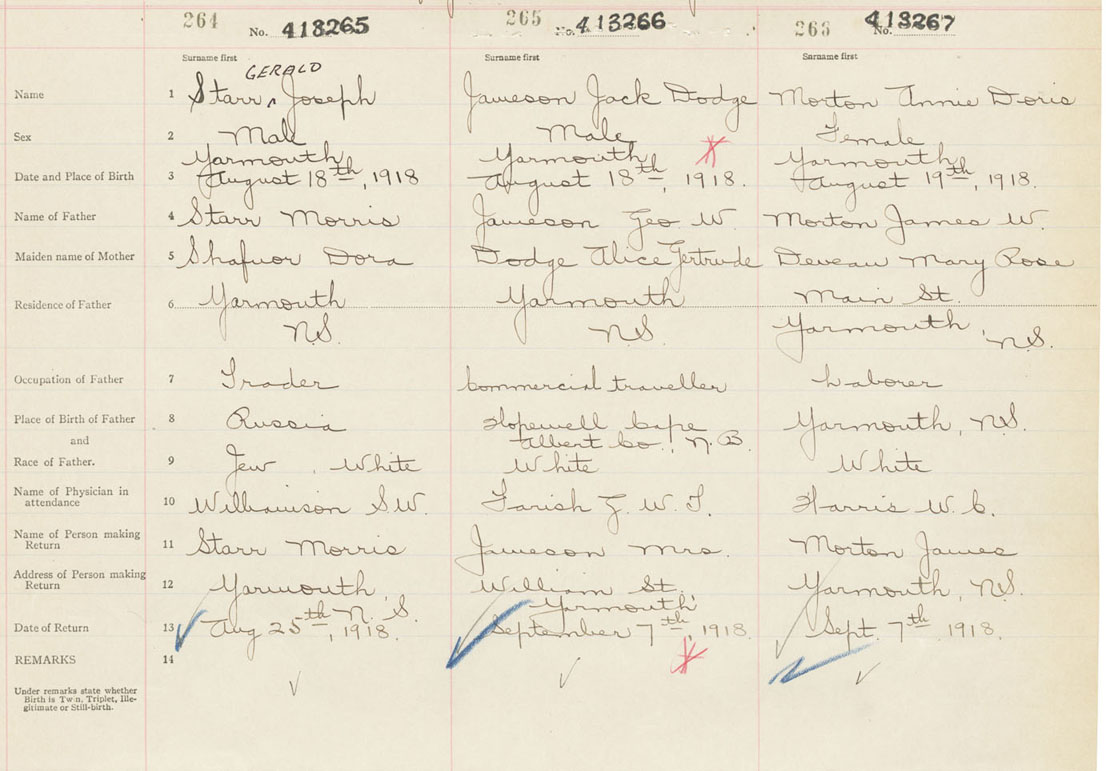 264 No. 413265
265 No. 413266
266 No. 413267
Surname first Surname first Surname first
GERALD
Name 1 Starr ^ Joseph Jameson Jack Dodge Morton Annie Doris
Sex 2 Male Male Female
Yarmouth Yarmouth Yarmouth
Date and Place of Birth 3 August 18th, 1918 August 18th, 1918. August 19th, 1918.
Name of Father 4 Starr Morris Jameson Geo W. Morton James W.
Maiden name of Mother 5 Dora Dodge Alice Gertrude Deveau Mary Rose
Residence of Father 6 Yarmouth Yarmouth Main St.
N.S. N.S. Yarmouth, N.S.
Occupation of Father 7 Trader Commercial traveller Laborer
Place of Birth of Father 8 Russia Hopewell Cape Yarmouth, N.S.
and Albert Co., N.B.
Race of Father. 9 Jew. White White White
Name of Physician in
attendance 10 Williamson S.W. Farish G. W. T. Harris W. C.
Name of Person making
Return 11 Starr Morris Jameson Mrs. Morton James
Address of Person making
Return 12 Yarmouth, William St., Yarmouth, N.S.
N. S. Yarmouth
Date of Return 13 Aug 25th, 1918. September 7th, 1918. Sept. 7th 1918.
REMARKS 14
Under remarks state whether
Birth is Twin, Triplet, Ille-
gitimate or Still-birth.